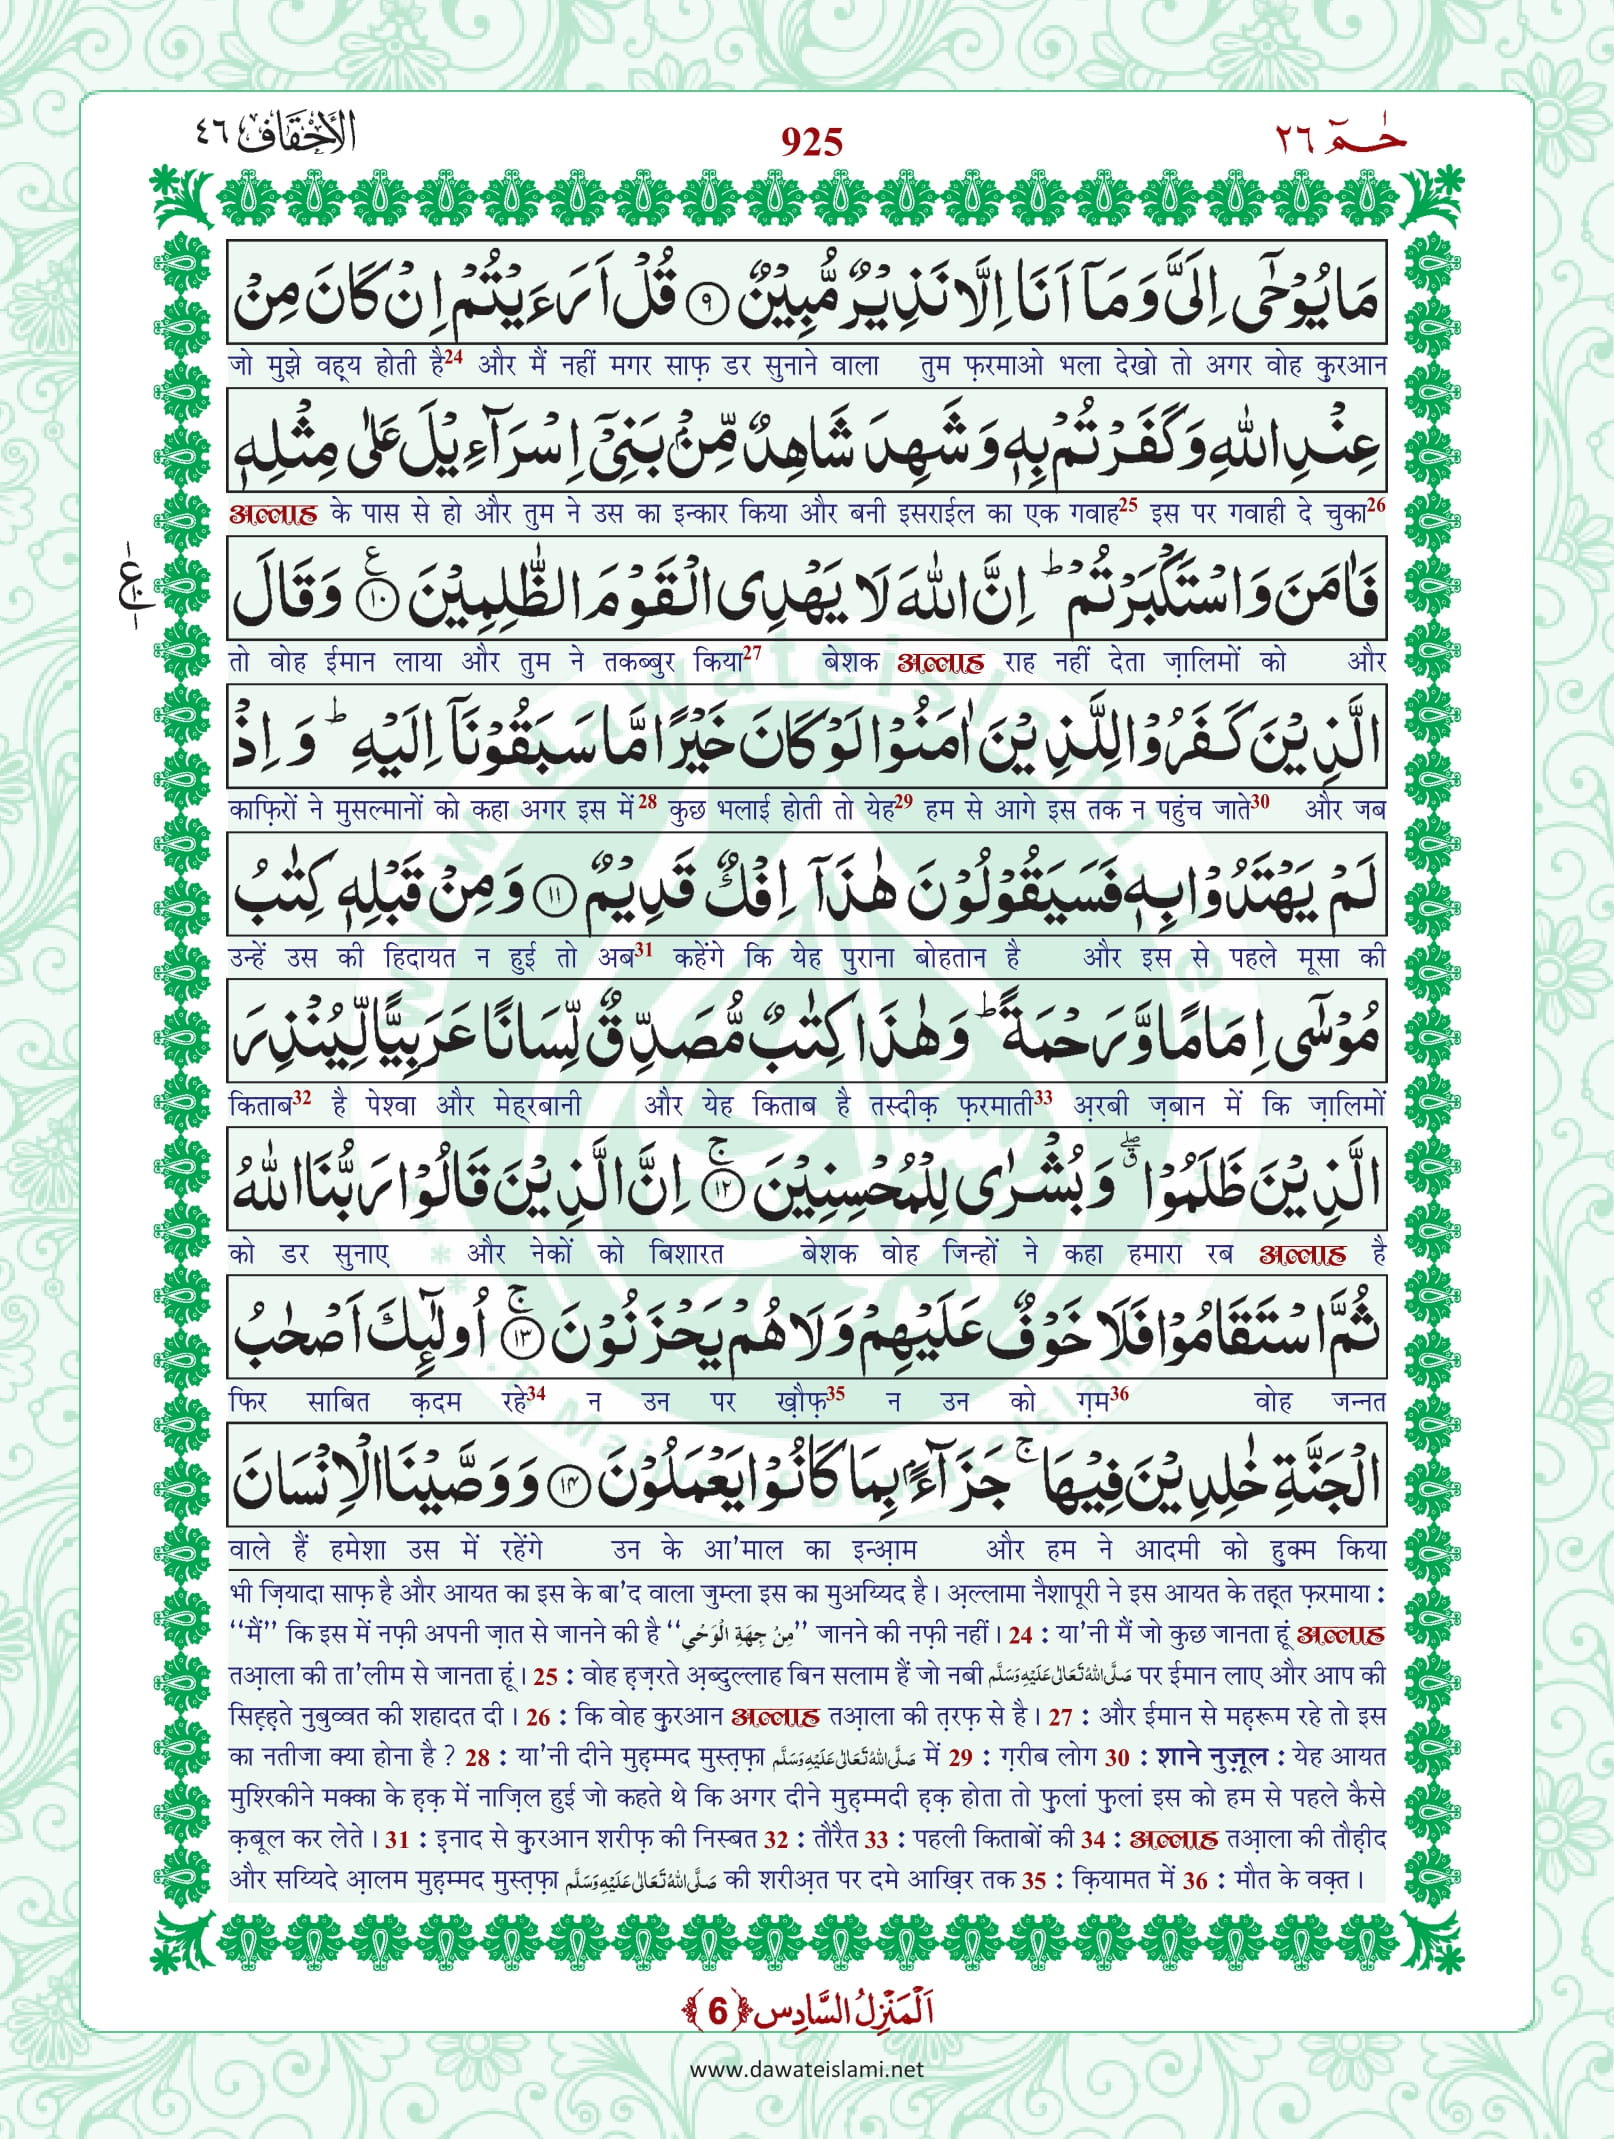 الأحقاف ٤٦
925
حٰمٓ ٢٦
مَا يُوْحٰۤى اِلَیَّ وَ مَاۤ اَنَا اِلَّا نَذِیْرٌ مُّبِیْنٌ ﴿۹﴾ قُلْ اَرَءَیْتُمْ اِنْ كَانَ مِنْ
जो मुझे वह़्य होती है24 और मैं नहीं मगर साफ़ डर सुनाने वाला तुम फ़रमाओ भला देखो तो अगर वोह क़ुरआन
عِنْدِ اللّٰهِ وَ كَفَرْتُمْ بِهٖ وَ شَهِدَ شَاهِدٌ مِّنْۢ بَنِیْۤ اِسْرَآءِیْلَ عَلٰى مِثْلِهٖ
अल्लाह के पास से हो और तुम ने उस का इन्कार किया और बनी इसराईल का एक गवाह25 इस पर गवाही दे चुका26
فَاٰمَنَ وَ اسْتَكْبَرْتُمْ ؕ اِنَّ اللّٰهَ لَا یَهْدِی الْقَوْمَ الظّٰلِمِیْنَ ﴿۱۰﴾ وَ قَالَ
तो वोह ईमान लाया और तुम ने तकब्बुर किया27 बेशक अल्लाह राह नहीं देता ज़ालिमों को और
الَّذِیْنَ كَفَرُوْا لِلَّذِیْنَ اٰمَنُوْا لَوْ كَانَ خَیْرًا مَّا سَبَقُوْنَاۤ اِلَیْهِ ؕ وَ اِذْ
काफ़िरों ने मुसल्मानों को कहा अगर इस में28 कुछ भलाई होती तो येह29 हम से आगे इस तक न पहुंच जाते30 और जब
لَمْ یَهْتَدُوْا بِهٖ فَسَیَقُوْلُوْنَ هٰذَاۤ اِفْكٌ قَدِیْمٌ ﴿۱۱﴾ وَ مِنْ قَبْلِهٖ كِتٰبُ
उन्हें उस की हिदायत न हुई तो अब31 कहेंगे कि येह पुराना बोहतान है और इस से पहले मूसा की
مُوْسٰۤى اِمَامًا وَّ رَحْمَةً ؕ وَ هٰذَا كِتٰبٌ مُّصَدِّقٌ لِّسَانًا عَرَبِیًّا لِّیُنْذِرَ
किताब32 है पेश्वा और मेह़रबानी और येह किताब है तस्दीक़ फ़रमाती33 अ़रबी ज़बान में कि ज़ालिमों
الَّذِیْنَ ظَلَمُوْا ۖۗ وَ بُشْرٰى لِلْمُحْسِنِیْنَ ﴿۱۲﴾ۚ اِنَّ الَّذِیْنَ قَالُوْا رَبُّنَا اللّٰهُ
को डर सुनाए और नेकों को बिशारत बेशक वोह जिन्हों ने कहा हमारा रब अल्लाह है
ثُمَّ اسْتَقَامُوْا فَلَا خَوْفٌ عَلَیْهِمْ وَ لَا هُمْ یَحْزَنُوْنَ ﴿۱۳﴾ۚ اُولٰٓىٕكَ اَصْحٰبُ
फिर साबित क़दम रहे34 न उन पर ख़ौफ़35 न उन को ग़म36 वोह जन्नत
الْجَنَّةِ خٰلِدِیْنَ فِیْهَا ۚ جَزَآءًۢ بِمَا كَانُوْا یَعْمَلُوْنَ ﴿۱۴﴾ وَ وَصَّیْنَا الْاِنْسَانَ
वाले हैं हमेशा उस में रहेंगे उन के आ’माल का इन्आ़म और हम ने आदमी को हुक्म किया
भी ज़ियादा साफ़ है और आयत का इस के बा’द वाला जुम्ला इस का मुअय्यिद है। अ़ल्लामा नैशापूरी ने इस आयत के तह़्त फ़रमाया :
‘‘मैं’’ कि इस में नफ़ी अपनी ज़ात से जानने की है ‘‘مِنْ جِهَةِ الْوَحْىِ’’ जानने की नफ़ी नहीं। 24 : या’नी मैं जो कुछ जानता हूं अल्लाह
तआ़ला की ता’लीम से जानता हूं। 25 : वोह ह़ज़रते अ़ब्दुल्लाह बिन सलाम हैं जो नबी صَلَّى اللهُ تَعَالٰى عَلَيْهِ وَسَلَّم पर ईमान लाए और आप की
सिह़्ह़ते नुबुव्वत की शहादत दी। 26 : कि वोह क़ुरआन अल्लाह तआ़ला की त़रफ़ से है। 27 : और ईमान से मह़रूम रहे तो इस
का नतीजा क्या होना है ? 28 : या’नी दीने मुह़म्मद मुस्त़फ़ा صَلَّى اللهُ تَعَالٰى عَلَيْهِ وَسَلَّم में 29 : ग़रीब लोग 30 : शाने नुज़ूल : येह आयत
मुश्रिकीने मक्का के ह़क़ में नाज़िल हुई जो कहते थे कि अगर दीने मुह़म्मदी ह़क़ होता तो फ़ुलां फ़ुलां इस को हम से पहले कैसे
क़बूल कर लेते। 31 : इनाद से क़ुरआन शरीफ़ की निस्बत 32 : तौरैत 33 : पहली किताबों की 34 : अल्लाह तआ़ला की तौह़ीद
और सय्यिदे आ़लम मुह़म्मद मुस्त़फ़ा صَلَّى اللهُ تَعَالٰى عَلَيْهِ وَسَلَّم की शरीअ़त पर दमे आख़िर तक 35 : क़ियामत में 36 : मौत के वक़्त।
اَلْمَنْزِلُ السَّادِس ﴿6﴾
www.dawateislami.net